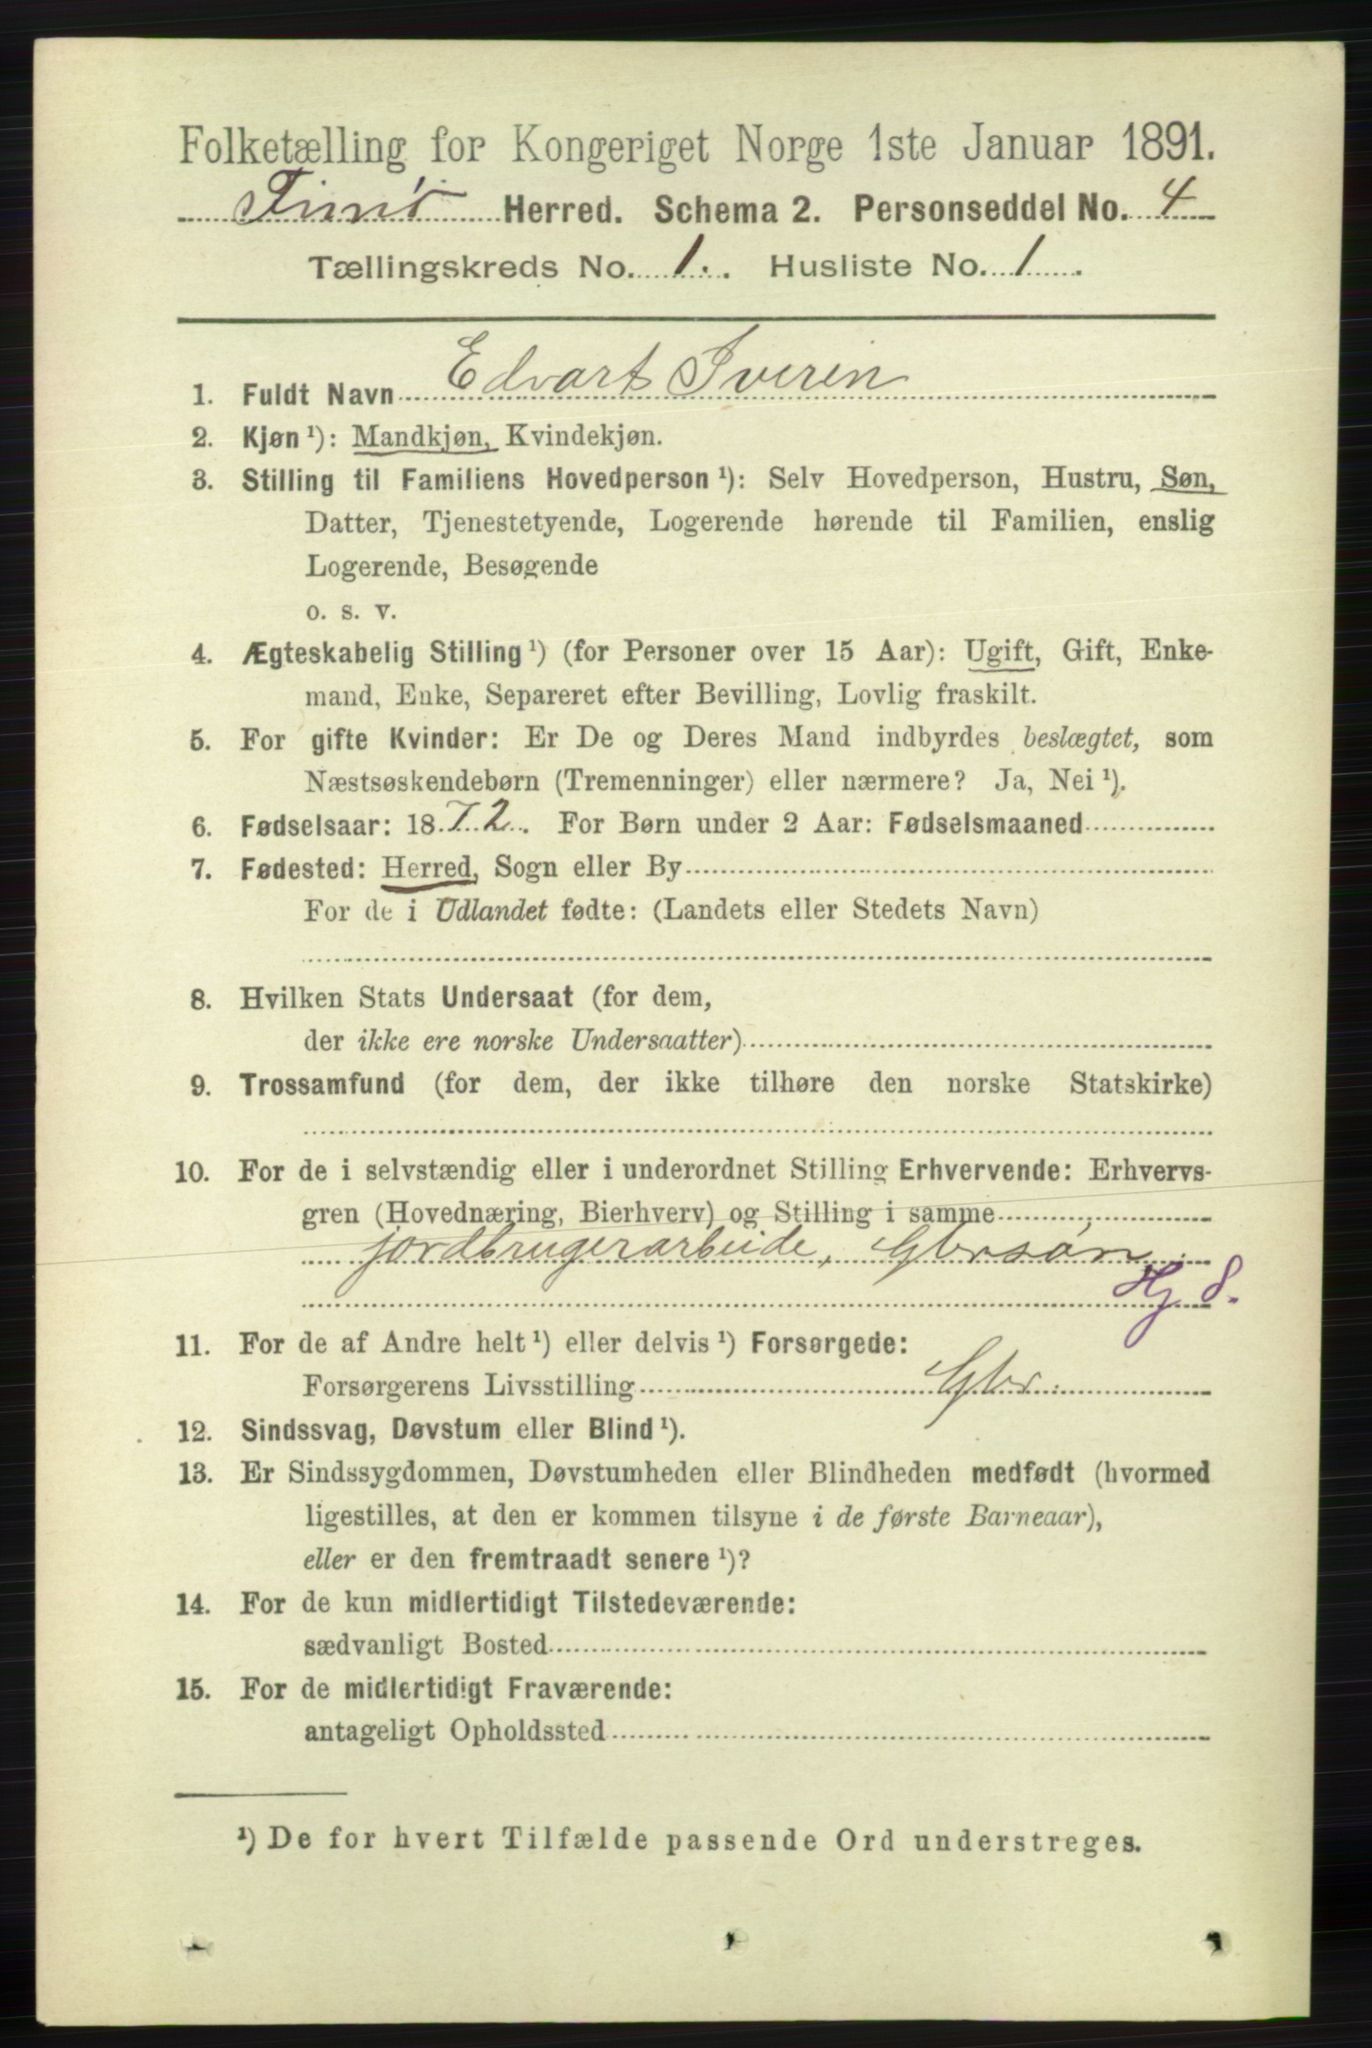 Folketælling for Kongeriget Norge 1ste Januar 1891.
Finnö Herred. Schema 2. Personseddel No. 4
Tællingskreds No. 1. Husliste No. 1
1. Fuldt Navn Edvart Iverin
2. Kjøn ¹): Mandkjøn, Kvindekjøn.
3. Stilling til Familiens Hovedperson ¹): Selv Hovedperson, Hustru, Søn,
Datter, Tjenestetyende, Logerende hørende til Familien, enslig
Logerende, Besøgende
o. s. v.
4. Ægteskabelig Stilling ¹) (for Personer over 15 Aar): Ugift, Gift, Enke-
mand, Enke, Separeret efter Bevilling, Lovlig fraskilt.
5. For gifte Kvinder: Er De og Deres Mand indbyrdes beslægtet, som
Næstsøskendebørn (Tremenninger) eller nærmere? Ja, Nei ¹).
6. Fødselsaar: 1872. For Børn under 2 Aar: Fødselsmaaned
7. Fødested: Herred, Sogn eller By
For de i Udlandet fødte: (Landets eller Stedets Navn)
8. Hvilken Stats Undersaat (for dem,
der ikke ere norske Undersaatter)
9. Trossamfund (for dem, der ikke tilhøre den norske Statskirke)
10. For de i selvstændig eller i underordnet Stilling Erhvervende: Erhvervs-
gren (Hovednæring, Bierhverv) og Stilling i samme
jordbrugerarbeide, Gbrsøn
Hj 8.
11. For de af Andre helt ¹) eller delvis ¹) Forsørgede:
Forsørgerens Livsstilling Gbr.
12. Sindssvag, Døvstum eller Blind ¹).
13. Er Sindssygdommen, Døvstumheden eller Blindheden medfødt (hvormed
ligestilles, at den er kommen tilsyne i de første Barneaar),
eller er den fremtraadt senere ¹)?
14. For de kun midlertidigt Tilstedeværende:
sædvanligt Bosted
15. For de midlertidigt Fraværende:
antageligt Opholdssted
¹) De for hvert Tilfælde passende Ord understreges.